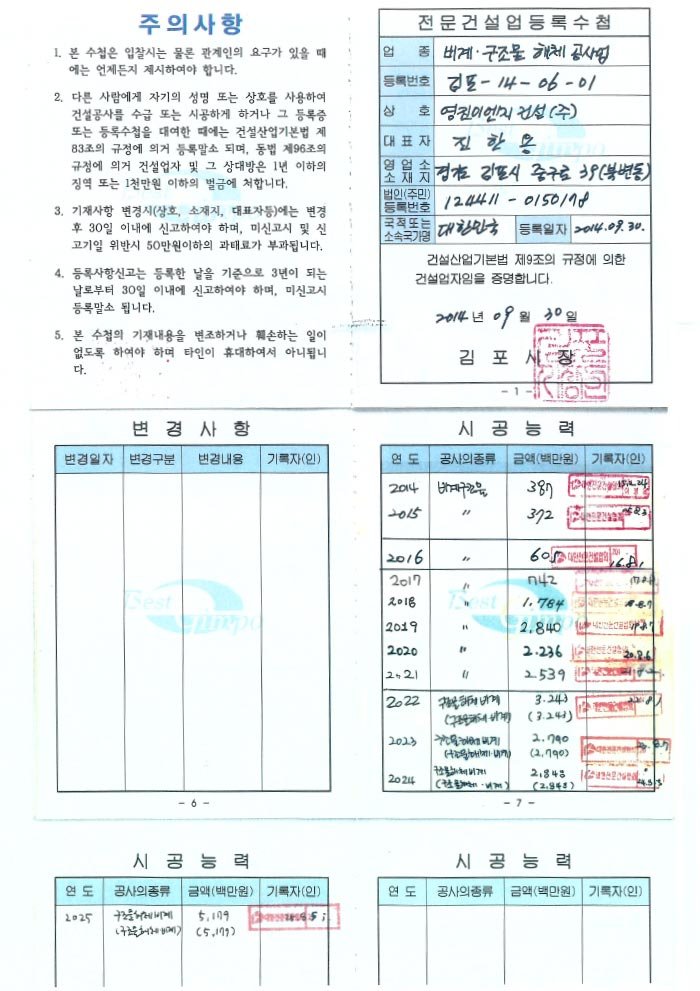 주의사항
1. 본 수첩은 입찰시는 물론 관계인의 요구가 있을 때
에는 언제든지 제시하여야 합니다.
2. 다른 사람에게 자기의 성명 또는 상호를 사용하여
건설공사를 수급 또는 시공하게 하거나 그 등록증
또는 등록수첩을 대여한 때에는 건설산업기본법 제
83조의 규정에 의거 등록말소 되며, 동법 제96조의
규정에 의거 건설업자 및 그 상대방은 1년 이하의
징역 또는 1천만원 이하의 벌금에 처합니다.
3. 기재사항 변경시(상호, 소재지, 대표자등)에는 변경
후 30일 이내에 신고하여야 하며, 미신고시 및 신
고기일 위반시 50만원이하의 과태료가 부과됩니다.
4. 등록사항신고는 등록한 날을 기준으로 3년이 되는
날로부터 30일 이내에 신고하여야 하며, 미신고시
등록말소 됩니다.
5. 본 수첩의 기재내용을 변조하거나 훼손하는 일이
없도록 하여야 하며 타인이 휴대하여서 아니됩니
다.
전문건설업등록수첩
업 종 비계·구조물 해체 공사업
등록번호 김포-14-06-01
상 호 영진이엔지 건설(주)
대 표 자 진 한 용
영 업 소
소 재 지 경기도 김포시 중구로 39(북변동)
법인(주민)
등록번호 124411-0150178
국적 또는
소속국가명 대한민국 등록일자 2014.09.30.
건설산업기본법 제9조의 규정에 의한
건설업자임을 증명합니다.
2014년 09월 30일
김 포 시 장
- 1 -
변 경 사 항
변경일자 변경구분 변경내용 기록자(인)
Best Gimpo
- 6 -
시 공 능 력
연 도 공사의종류 금액(백만원) 기록자(인)
2014 비계구조물 387 대한전문건설협회
2015 〃 372 대한전문건설협회
2016 〃 605 대한전문건설협회 16.8.1
2017 〃 742
2018 〃 1.784
2019 〃 2.840 대한전문건설협회
2020 〃 2.236 대한전문건설협회 20.8.6
2021 〃 2.539
2022 구조물해체비계 3.243 대한전문건설협회
(구조물해체 비계) (3.243)
2023 구조물해체 비계 2.790 대한전문건설협회
(구조물해체·비계) (2.790)
2024 구조물해체비계 2.848 대한전문건설협회
(구조물해체·비계) (2.848)
Best Gimpo
- 7 -
시 공 능 력
연 도 공사의종류 금액(백만원) 기록자(인)
2025 구조물해체비계 5,179 대한전문건설협회
(구조물해체비계) (5,179)
시 공 능 력
연 도 공사의종류 금액(백만원) 기록자(인)